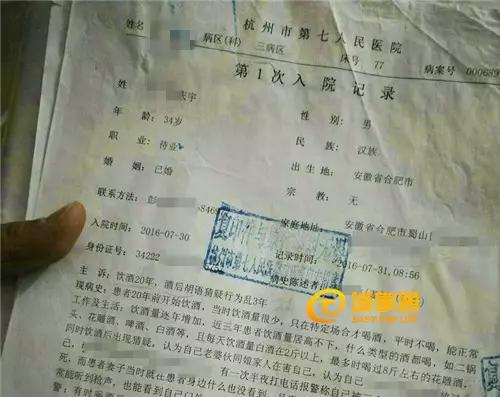 杭州市第七人民医院
姓名 病区(科) 三病区 床号 77 病案号 000689
第1次入院记录
姓 庆宇 性 别: 男
年 龄: 34岁 民 族: 汉族
职 业: 待业 出生地: 安徽省合肥市
婚 姻: 已婚 宗 教: 无
联系方法: 彭 8469 家庭地址: 安徽省合肥市蜀山
入院时间: 2016-07-30 记录时间: 2016-07-31,08:56
身份证号: 34222 病史陈述者:
主 诉: 饮酒20年, 酒后胡语猜疑行为乱3年
现病史: 患者20年前开始饮酒, 当时饮酒量很少, 只在特定场合才喝酒, 平时不喝, 能正常
工作及生活; 饮酒量逐年增加, 近三年患者饮酒量居高不下, 什么类型的酒都喝, 如二锅
头、花雕酒、啤酒、白酒等, 且每天饮酒量白酒在2斤以上, 最多时喝过8斤左右的花雕酒,
同时饮酒后出现猜疑, 认为自己老婆伙同娘家人在害自己, 认为自己
有一次半夜打电话报警称自己被
死, 而患者妻子当时就在患者身边什么也没看到,
常能听到枪声, 也能看到自己
警;